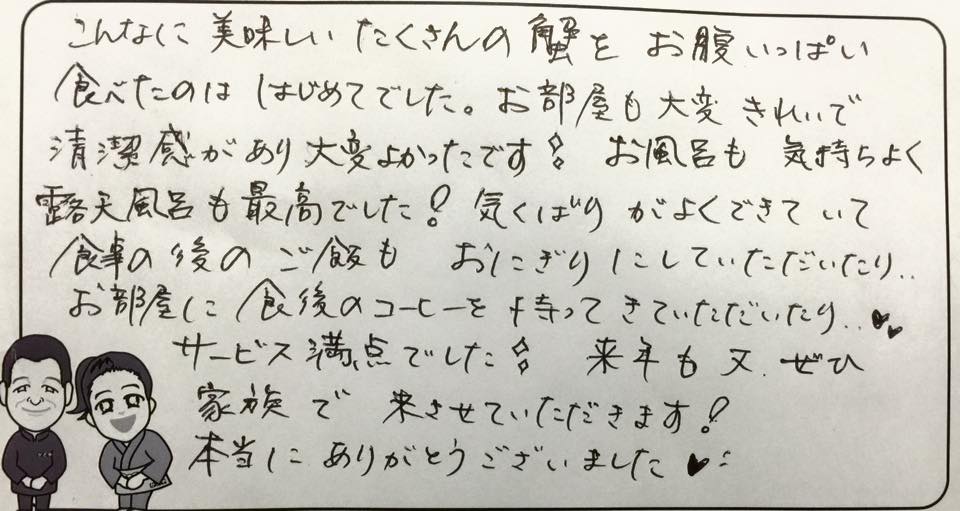 こんなに 美味しい たくさんの 蟹を お腹いっぱい
食べたのは はじめてでした。お部屋も 大変 きれいで
清潔感があり 大変よかったです! お風呂も 気持ちよく
露天風呂も最高でした! 気くばり がよくできて いて
食事の後の ご飯も おにぎりにしていただいたり..
お部屋に 食後のコーヒーを 持ってきていただいたり..♥♥
サービス満点でした! 来年も 又、ぜひ
家族で 来させていただきます!
本当に ありがとうございました♥